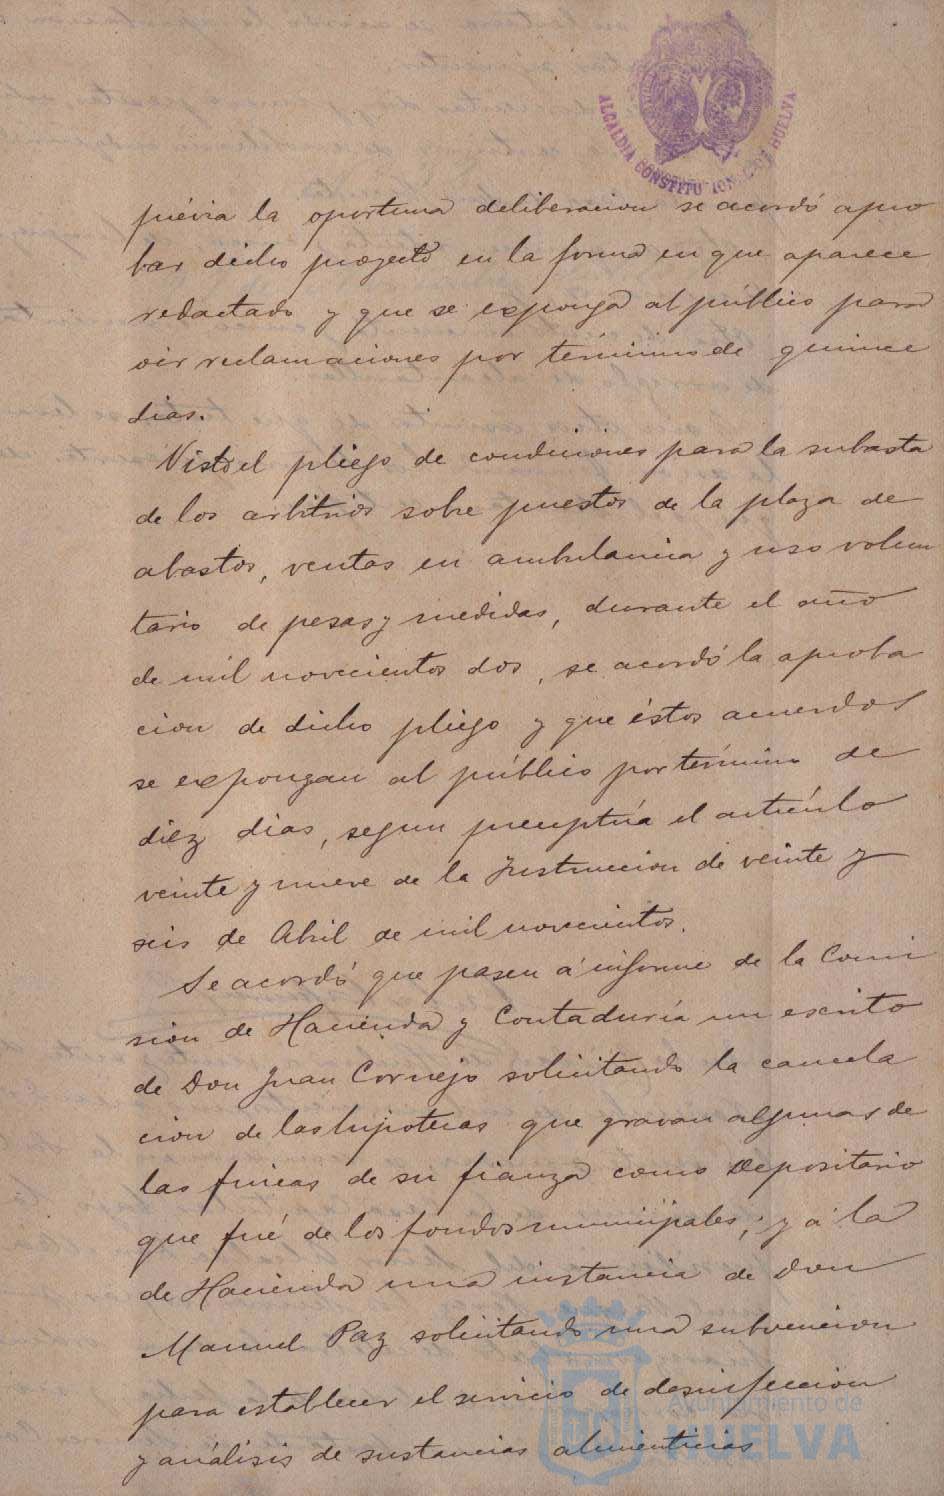 ALCALDIA CONSTITUCIONAL DE HUELVA
prévia la oportuna deliberacion se acordó apro
bar dicho proyecto en la forma en que aparece
redactado y que se exponga al público para
oir reclamaciones por término de quince
dias.
Visto el pliego de condiciones para la subasta
de los arbitrios sobre puestos de la plaza de
abastos, ventas en ambulancia y uso volun
tario de pesas y medidas, durante el año
de mil novecientos dos, se acordó la aproba
cion de dicho pliego y que éstos acuerdos
se expongan al público por término de
diez dias, segun preceptúa el artículo
veinte y nueve de la Instruccion de veinte y
seis de Abril de mil novecientos.
Se acordó que pasen á informe de la Comi
sion de Hacienda y Contaduría un escrito
de Don Juan Cornejo solicitando la cancela
cion de las hipotecas que gravan algunas de
las fincas de su fianza como Depositario
que fué de los fondos municipales; y á la
de Hacienda una instancia de Don
Manuel Paz solicitando una subvencion
para establecer el servicio de desinfeccion
y análisis de sustancias alimenticias
Ayuntamiento de
HUELVA